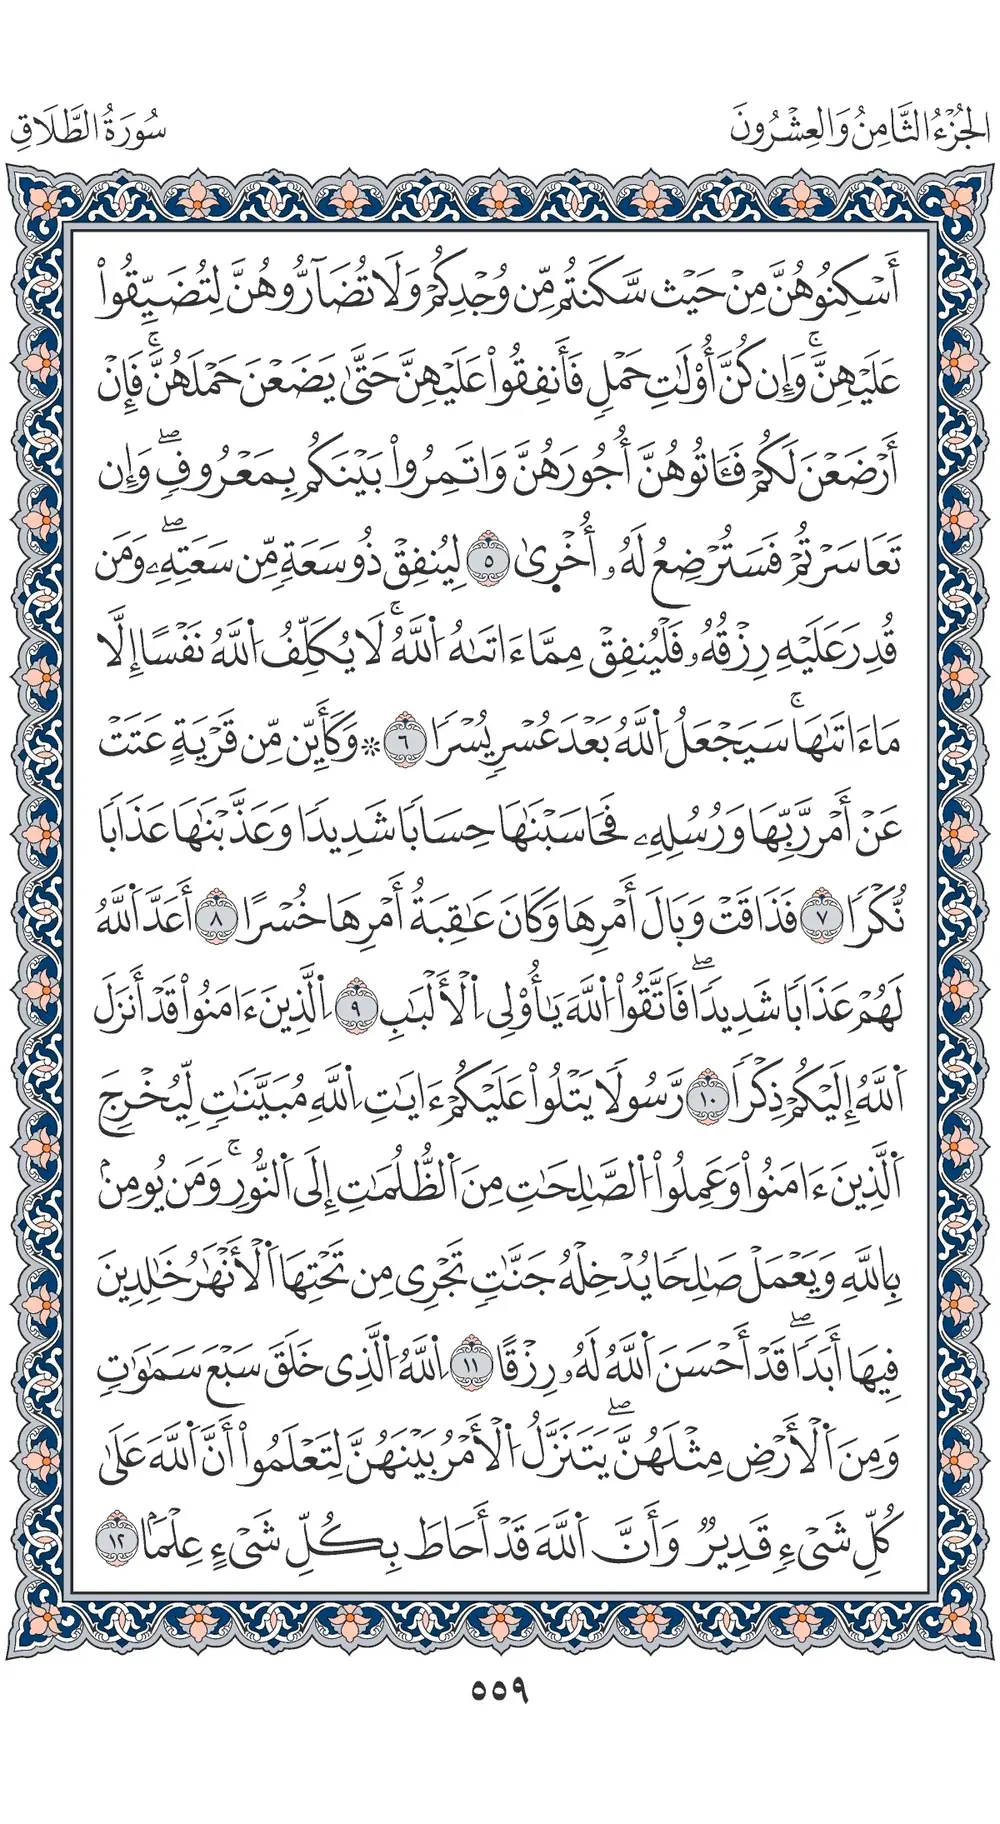 الجُزْءُ الثَّامِنُ وَالعِشْرُونَ
سُورَةُ الطَّلَاقِ
أَسْكِنُوهُنَّ مِنْ حَيْث سَّكَنتُم مِّن وُجْدِكُمْ وَلَا تُضَآرُّوهُنَّ لِتُضَيِّقُواْ
عَلَيْهِنَّۚ وَإِن كُنَّ أُوْلَٰتِ حَمْلٖ فَأَنفِقُواْ عَلَيْهِنَّ حَتَّىٰ يَضَعْنَ حَمْلَهُنَّۚ فَإِنْ
أَرْضَعْنَ لَكُمْ فَـَٔاتُوهُنَّ أُجُورَهُنَّ وَاتَمِرُواْ بَيْنَكُم بِمَعْرُوفٖۖ وَإِن
تَعَاسَرْتُمْ فَسَتُرْضِعُ لَهُۥ أُخْرٜىٰ ٥ لِيُنفِقْ ذُو سَعَةٖ مِّن سَعَتِهِۦۖ وَمَن
قُدِرَ عَلَيْهِ رِزْقُهُۥ فَلْيُنفِقْ مِمَّا ءَاتَىٰهُ اُ۬للَّهُۚ لَا يُكَلِّفُ اُ۬للَّهُ نَفْسًا إِلَّا
مَا ءَاتَىٰهَاۚ سَيَجْعَلُ اُ۬للَّهُ بَعْدَ عُسْرٖ يُسْرٗا ٦ ۞ وَكَأَيِّن مِّن قَرْيَةٍ عَتَتْ
عَنْ أَمْر رَّبِّهَا وَرُسُلِهِۦ فَحَاسَبْنَٰهَا حِسَابٗا شَدِيدٗا وَعَذَّبْنَٰهَا عَذَابٗا
نُّكْرٗا ٧ فَذَاقَتْ وَبَالَ أَمْرِهَا وَكَانَ عَٰقِبَةُ أَمْرِهَا خُسْرًا ٨ أَعَدَّ اَ۬للَّهُ
لَهُمْ عَذَابٗا شَدِيدٗاۖ فَاتَّقُواْ اُ۬للَّهَ يَٰأُوْلِي اِ۬لْأَلْبَٰبِ ٩ اِ۬لَّذِينَ ءَامَنُواْ قَدْ أَنزَلَ
اَ۬للَّهُ إِلَيْكُمْ ذِكْرٗا ١٠ رَّسُولٗا يَتْلُواْ عَلَيْكُمْ ءَايَٰتِ اِ۬للَّهِ مُبَيَّنَٰتٖ لِّيُخْرِجَ
اَ۬لَّذِينَ ءَامَنُواْ وَعَمِلُواْ اُ۬لصَّٰلِحَٰتِ مِنَ اَ۬لظُّلُمَٰتِ إِلَى اَ۬لنُّورِۚ وَمَن يُومِنۢ
بِاللَّهِ وَيَعْمَلْ صَٰلِحٗا يُدْخِلْهُ جَنَّٰتٖ تَجْرِي مِن تَحْتِهَا اَ۬لْأَنْهَٰرُ خَٰلِدِينَ
فِيهَا أَبَدٗاۖ قَدْ أَحْسَنَ اَ۬للَّهُ لَهُۥ رِزْقًا ١١ اِ۬للَّهُ اُ۬لَّذِي خَلَقَ سَبْعَ سَمَٰوَٰتٖ
وَمِنَ اَ۬لْأَرْضِ مِثْلَهُنَّۖ يَتَنَزَّلُ اُ۬لْأَمْرُ بَيْنَهُنَّ لِتَعْلَمُواْ أَنَّ اَ۬للَّهَ عَلَىٰ
كُلِّ شَيْءٖ قَدِيرٞ وَأَنَّ اَ۬للَّهَ قَدْ أَحَاطَ بِكُلِّ شَيْءٍ عِلْمَۢا ١٢
٥٥٩